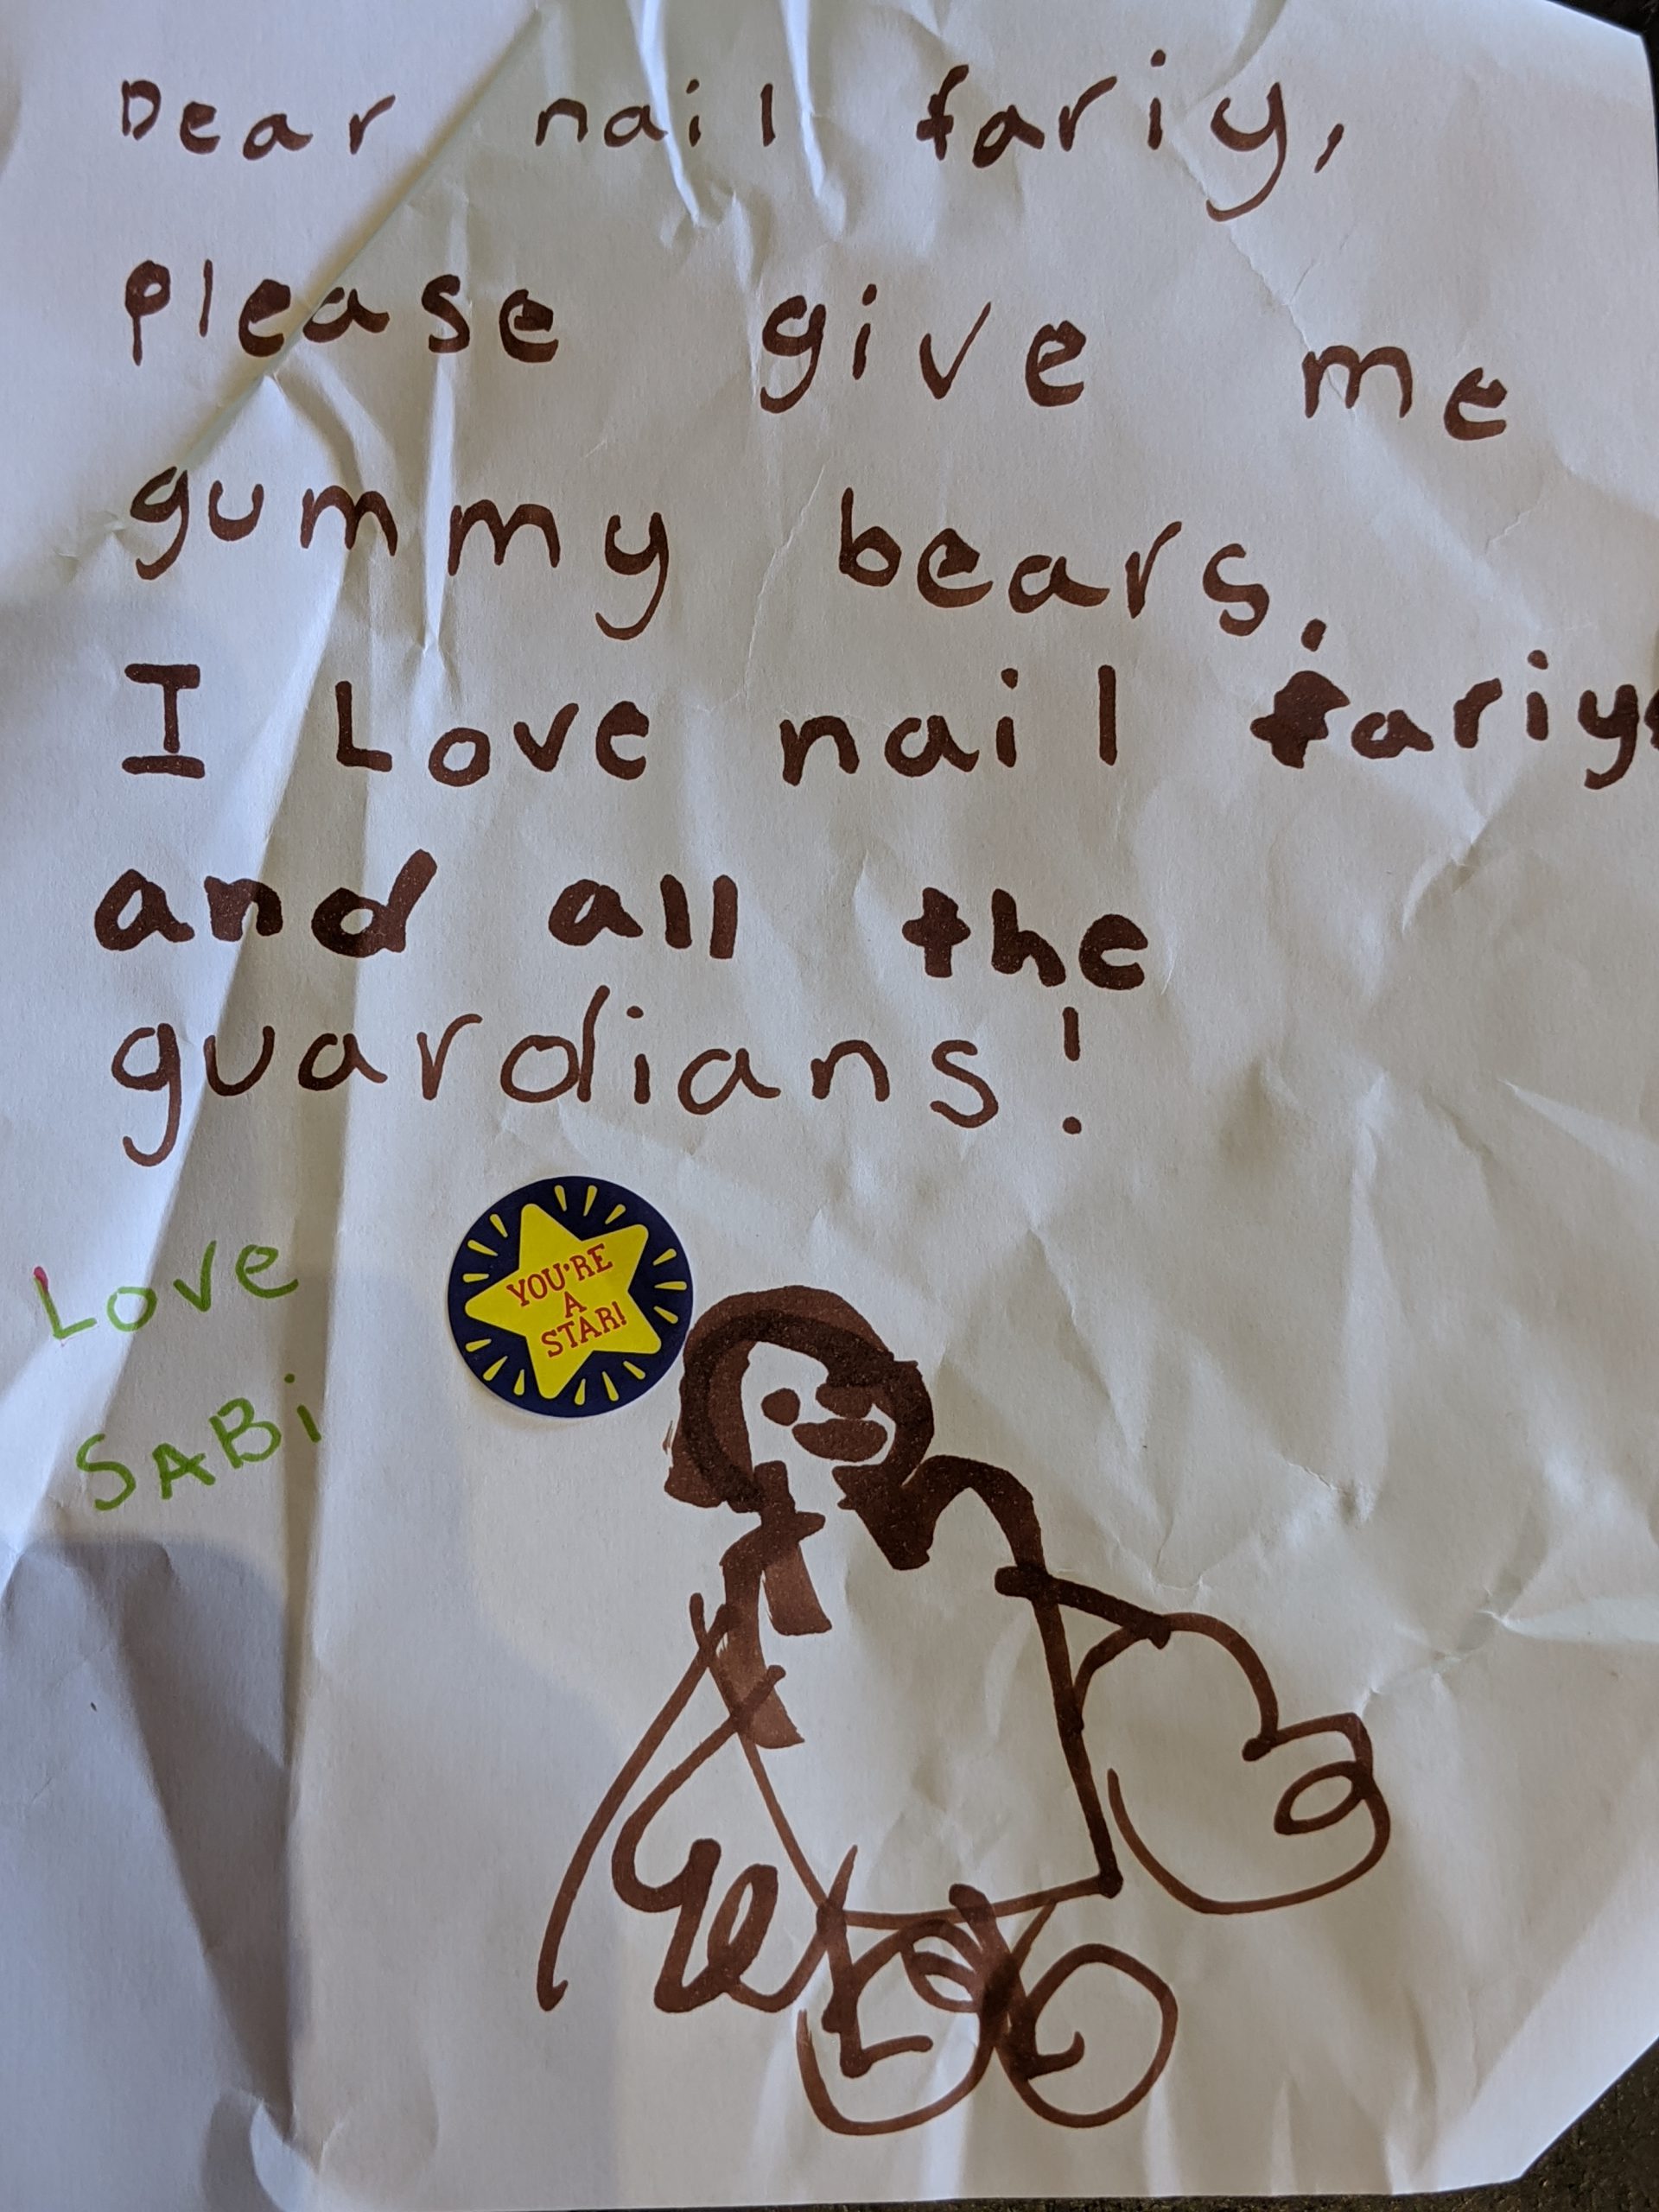 Dear nail fariy,
please give me
gummy bears.
I Love nail fariy
and all the
guardians!
Love
SABi
YOU'RE
A
STAR!